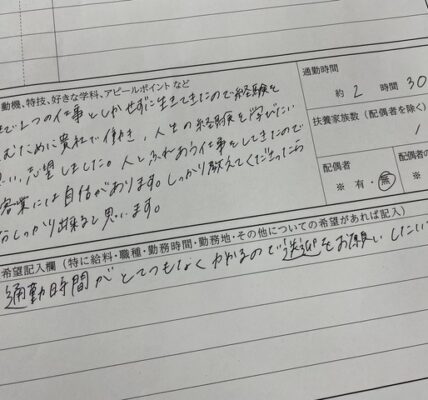 動機、特技、好きな学科、アピールポイント など
で1つの仕事としかせずに生きてきたので経験を
むために貴社で働き、人生の経験を学びたい
い、志望しました。人とふれあう仕事をしてきたので
客業には自信があります。しっかり教えてくださったら
しっかり出来ると思います。
通勤時間
約 2 時間 30
扶養家族数(配偶者を除く)
1
配偶者
※ 有・無
配偶者の
※
希望記入欄(特に給料・職種・勤務時間・勤務地・その他についての希望があれば記入)
通勤時間がとてつもなくかかるので送迎をお願いしたい